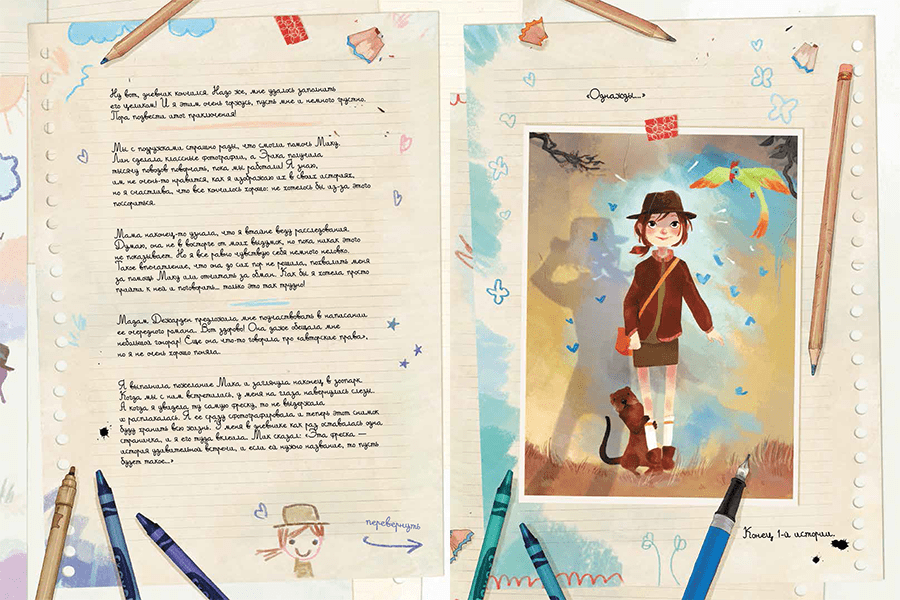 Ну вот, дневник кончился. Надо же, мне удалось заполнить
его целиком! И я этим очень горжусь, пусть мне и немного грустно.
Пора подвести итог приключения!
Мы с подружками страшно рады, что смогли помочь Мику.
Лин сделала классные фотографии, а Эрика получила
тысячу поводов поворчать, пока мы работали! Я знаю,
им не очень-то нравится, как я изображаю их в своих историях,
но я счастлива, что все кончилось хорошо: не хотелось бы из-за этого
поссориться.
Мама наконец-то узнала, что я втайне веду расследования.
Думаю, она не в восторге от моих выдумок, но пока никак этого
не показывает. Но я все равно чувствую себя немного неловко.
Такое впечатление, что она до сих пор не решила, похвалить меня
за помощь Мику или отчитать за обман. Как бы я хотела просто
прийти к ней и поговорить... только это так трудно!
Мадам Дежарден предложила мне поучаствовать в написании
ее очередного романа. Вот здорово! Она даже обещала мне
небольшой гонорар! Еще она что-то говорила про «авторские права»,
но я не очень хорошо поняла.
Я выполнила пожелание Мика и заглянула наконец в зоопарк.
Когда мы с ним встретились, у меня на глаза навернулись слезы.
А когда я увидела ту самую фреску, то не выдержала
и расплакалась. Я ее сразу сфотографировала и теперь этот снимок
буду хранить всю жизнь. У меня в дневнике как раз оставалась одна
страничка, и я его туда вклеила. Мик сказал: «Эта фреска —
история удивительной встречи, и если ей нужно название, то пусть
будет такое...»
перевернуть
«Однажды...»
Конец 1-й истории.